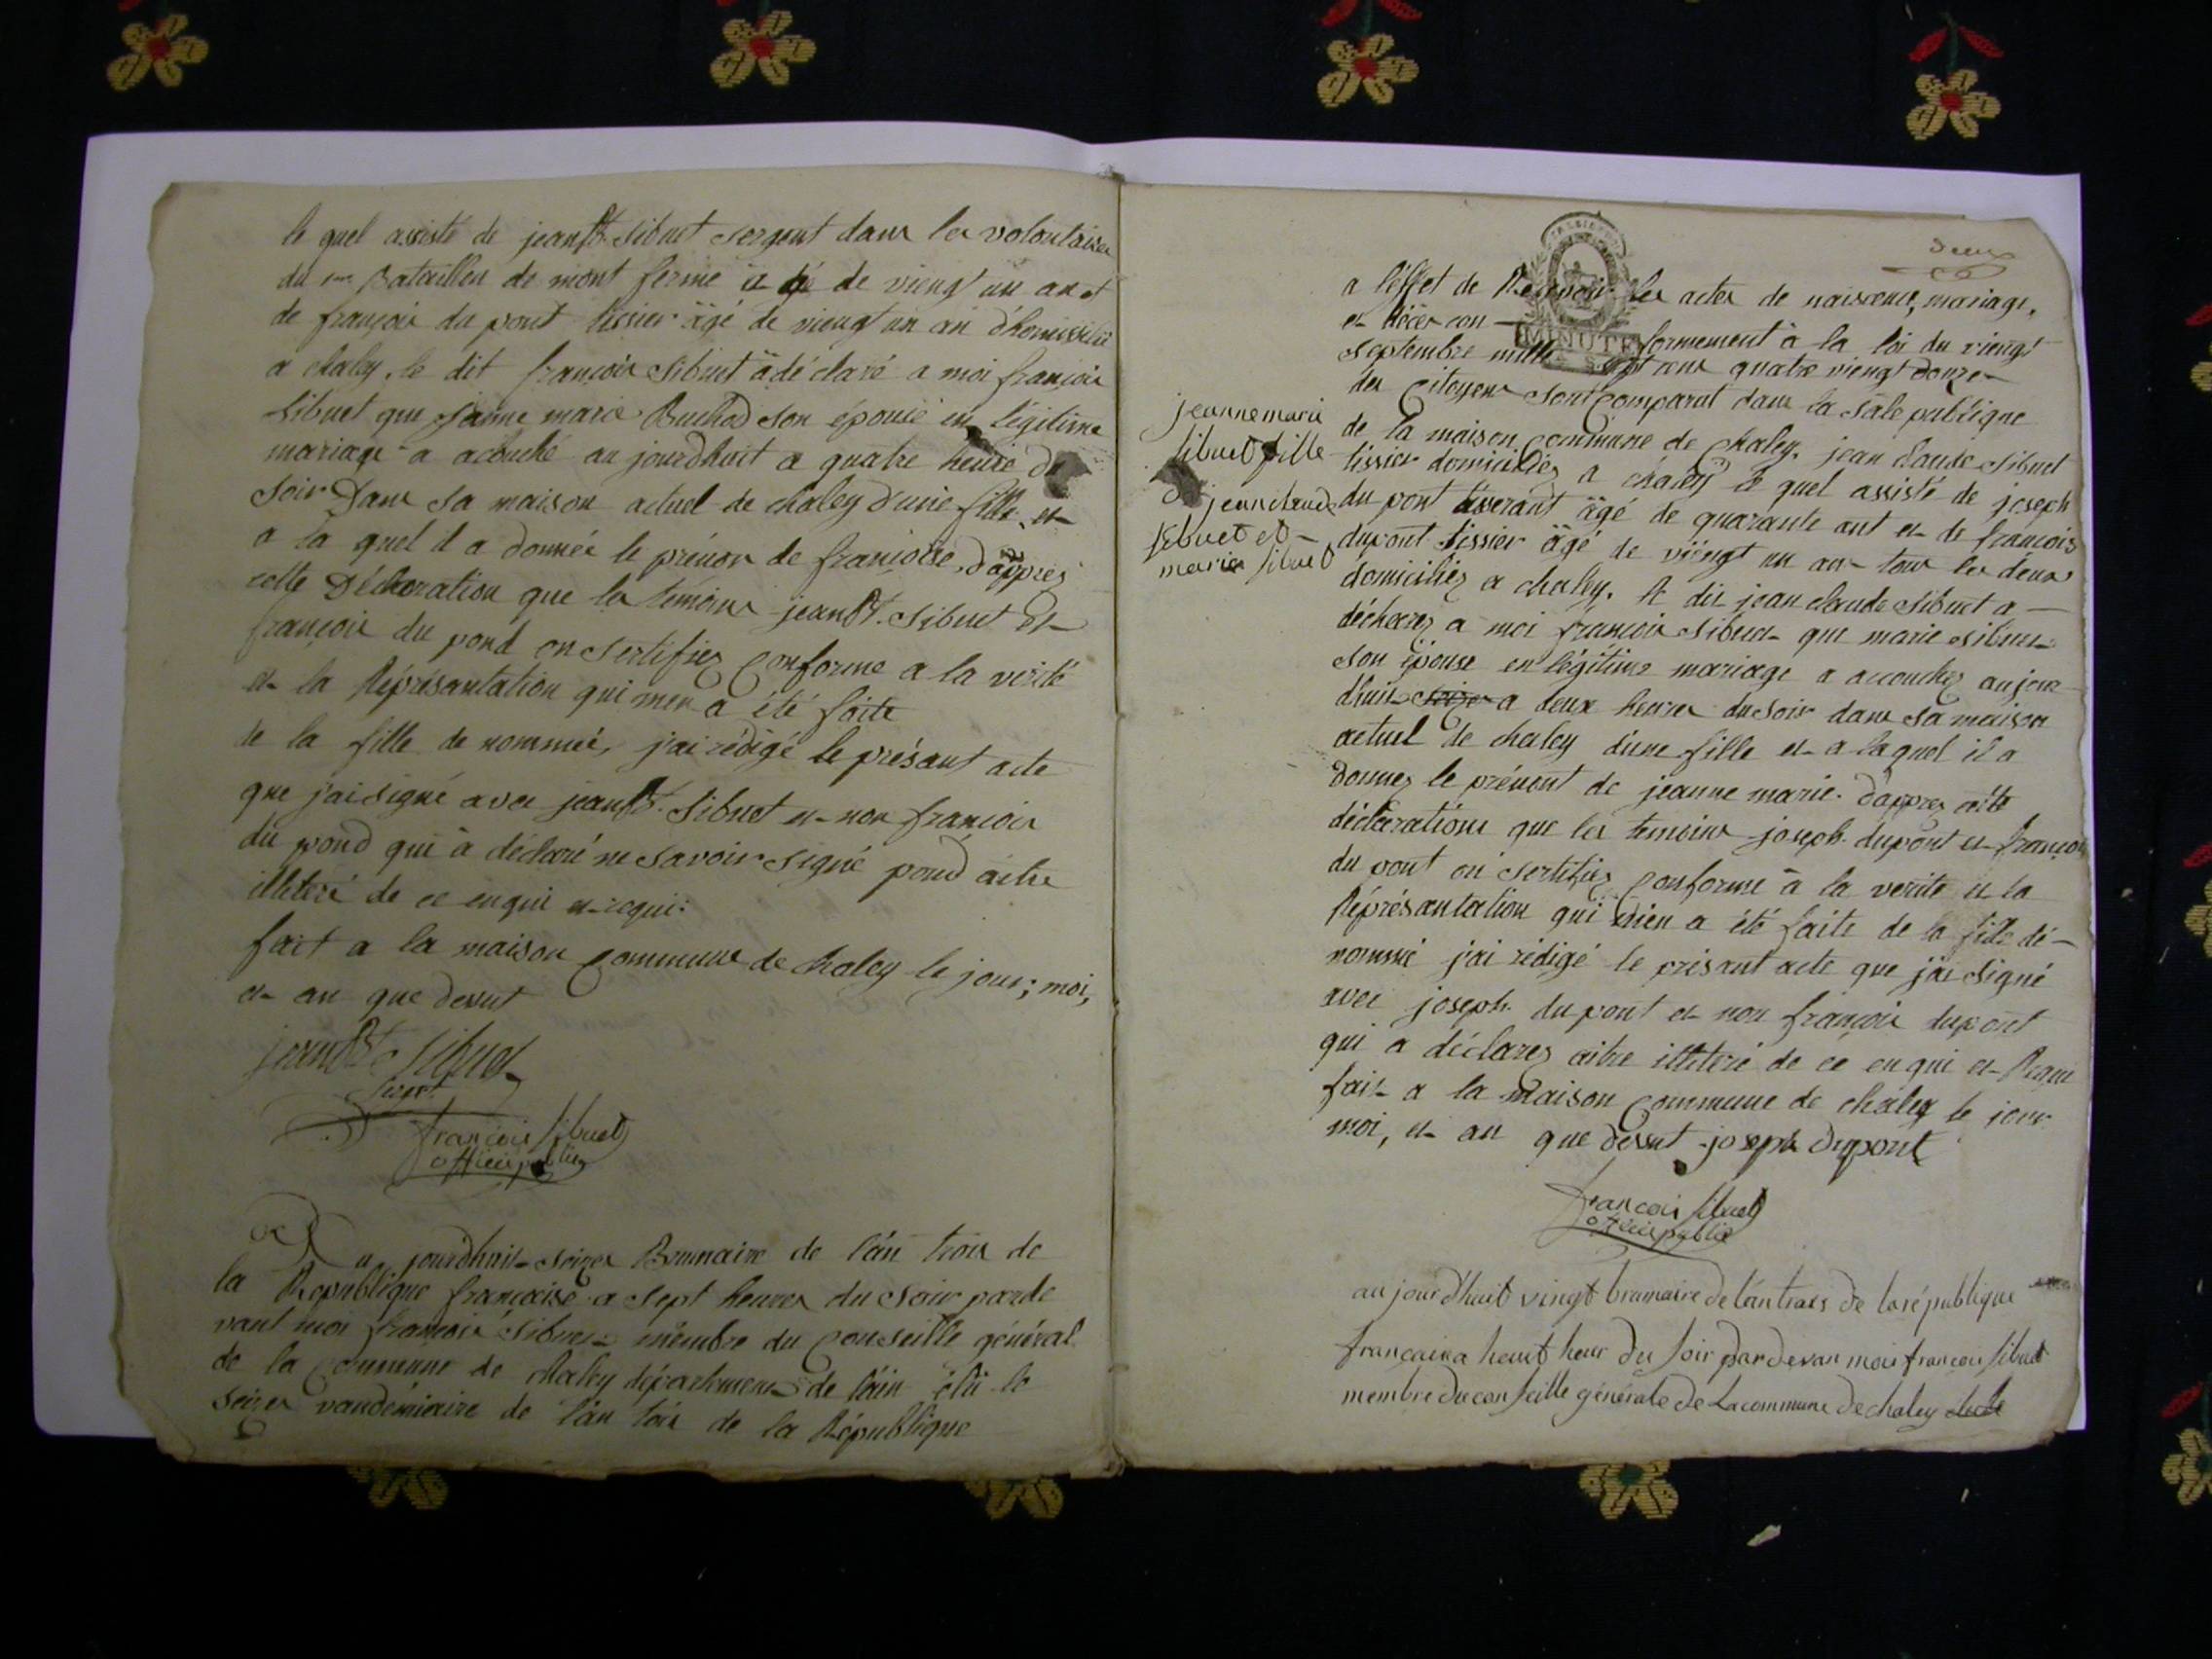 le quel assisté de jean Bt. Sibuet sergent dans les volontaires
du 1er Bataillon de mont ferme âgé de viengt un ans et
de françois du pont tissier âgé de viengt un an domissilié
a chaley, le dit françois Sibuet a déclaré a moi françois
Sibuet que janne marie Buchod son épouse en légitime
mariage a acouché au jourdhuit a quatre heure du
soir Dans sa maison actuel de chaley d'une fille et
a la quel il a donnée le prénon de françoise, d'apprés
cette Décleration que les témoins jean Bt. Sibuet et
françois du pond on sertifiez conforme a la verité
et la Réprésantation qui men a été faite
de la fille de nommée, j'ai rédigé le présant acte
que j'ai signé avec jean Bt. Sibuet et non françois
du pond qui à déclaré ne savoir signé poud aitre
illeteré de ce enqui et requi:
fait a la maison commune de chaley le jour; moi,
et an que desut
jean Bt Sibuet
sergt.
françois Sibuet
officié public
Au jourdhuit seizes Brumaire de l'an trois de
la République française a sept heures du soir parde
vant moi françois Sibuet membre du conseille général
de la commune de chaley département de l'ain élu le
seizes vandémiaire de l'an tois de la République
deux
a l'éffet de Recevoir les actes de naissence, mariage,
et décés con formement à la loi du viengt
MINUTE
septembre mille sept cens quatre viengt donze
des Citoyens sont Comparut dans la sale publique
de la maison commune de chaley. jean claude sibuet
tissier domiciliez a chaley le quel assisté de joseph
du pont tisserant âgé de quarante ant et de françois
dupont tissier âgé de viengt un ans tous les deux
domiciliez a chaley. le dit jean claude Sibuet a
déclarez a moi françois Sibuet que marie sibuet
son épouse en légitime mariage a accouchez aujour
dhuit seizes a deux heures du soir dans sa maison
actuel de chaley d'une fille et a laquel il a
donnez le prénont de jeanne marie. d'apprez cette
déclerations que les temoins joseph dupont et françois
du pont on sertifiez conforme à la verite et la
Réprésantation qui mien a été faite de la fille dé-
nommé j'ai rédigé le présant acte que j'ai signé
avec joseph du pont et non françois dupont
qui a déclarez aitre illeteré de ce enqui et Requi
fait a la maison commune de chaley le jour
moi, et an que desut joseph dupont
jeanne marie
sibuet fille
de jean claude
sibuet et
marie sibuet
francois sibuet
officié public
au jourdhuit vingt brumaire de l'an trois de la république
française a heuit heur du soir pardevan moi francois sibuet
membre du conseille générale de la commune de chaley